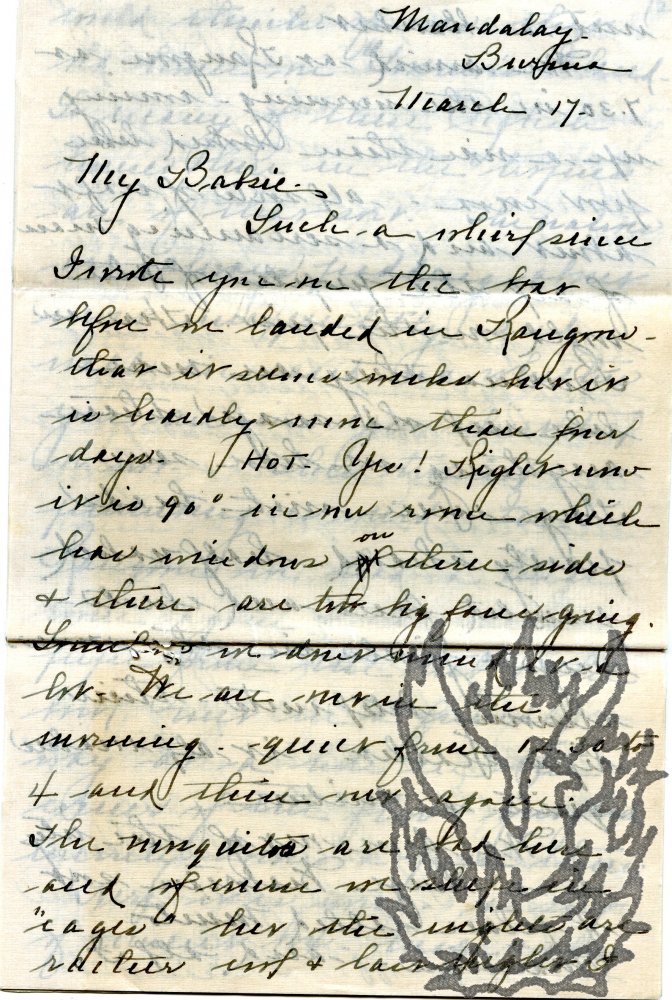 Mandalay.
Burma
March 17-
My Babsie.
Such a whirl since
I wrote you on the boat
before we landed in Rangoon-
that it seems weeks but it
is hardly more than four
days. HOT. Yes! Right now
it is 90° in our room which
has windows on three sides
& there are two big fans going.
Somehow we don't mind it a
lot- We are out in the
morning - quiet from 12.30 to
4 and then out again.
The mosquitoes are bad here
and of course we sleep in
"cages" but the nights are
rather cool & last night I